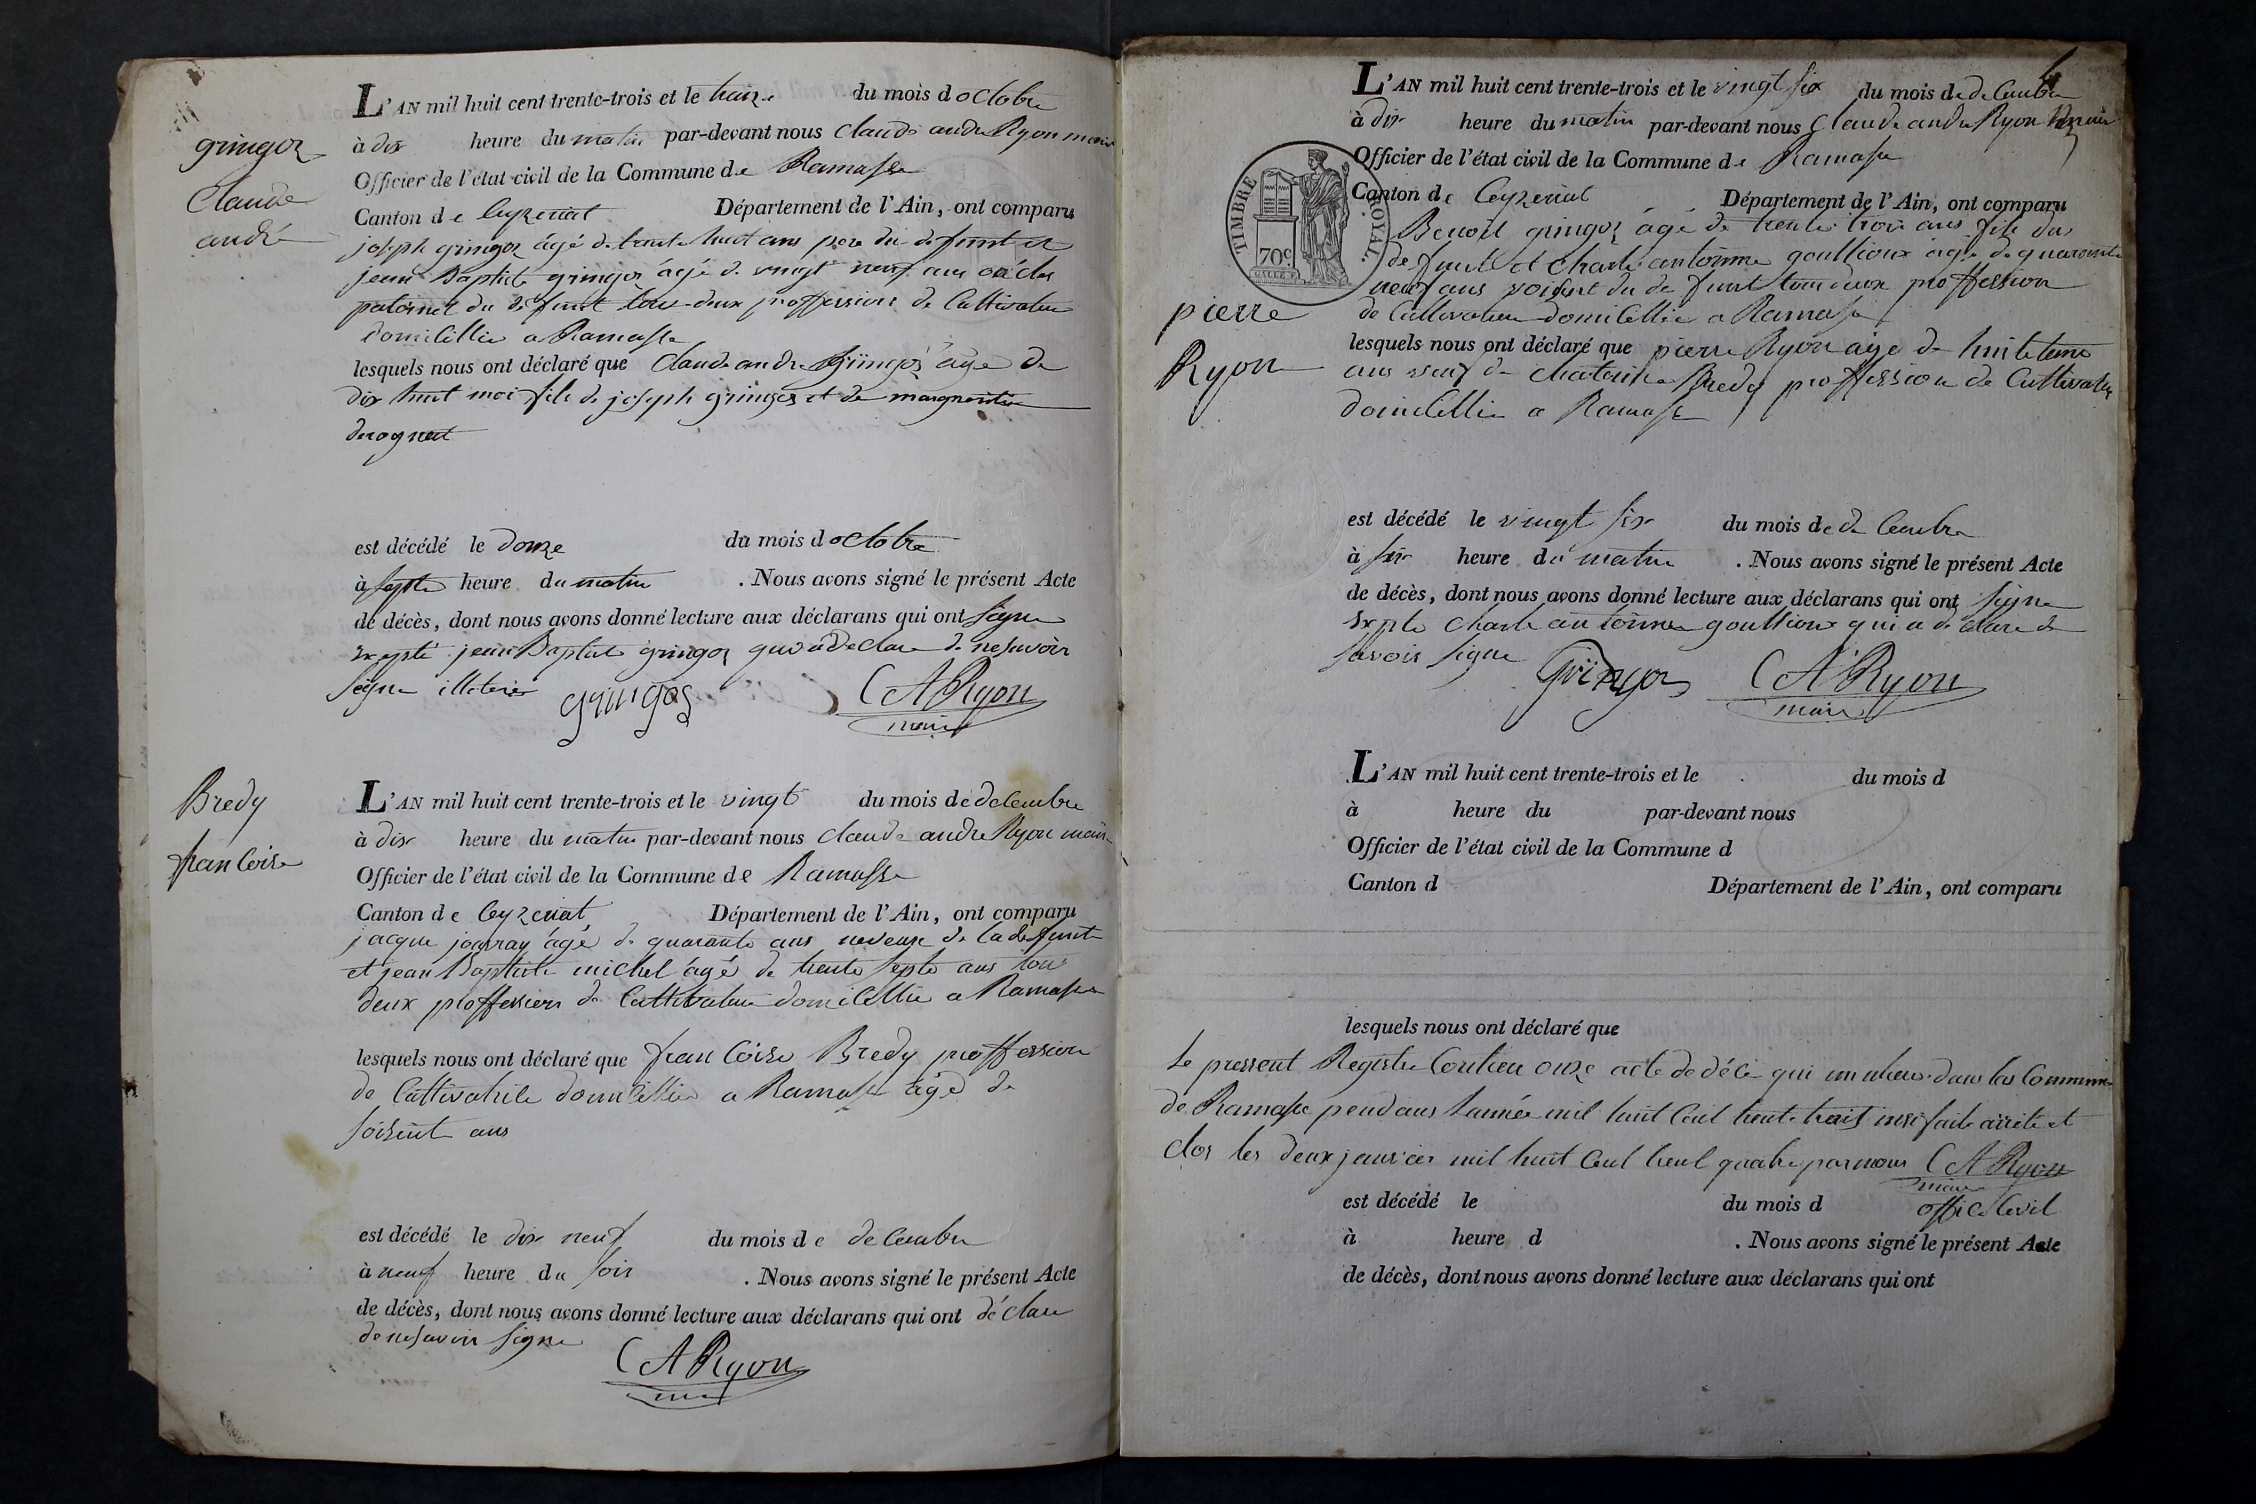 gringoz
Claude
andré
L'AN mil huit cent trente-trois et le treize du mois d octobre
à dix heure du matin par-devant nous Claude andre Ryon maire
Officier de l'état civil de la Commune de Ramasse
Canton de Ceyzeriat Département de l'Ain, ont comparu
joseph gringoz âgé de trente huit ans pere du defunt et
jean Baptiste gringoz âgé de vingt neuf ans oncle
paternel du defunt tous deux proffession de Cultivateur
domicillie a Ramasse
lesquels nous ont déclaré que Claude andre gringoz âge de
dix huit moi fils de joseph gringoz et de marguerite
est décédé le douze du mois d octobre
à septe heure du matin . Nous avons signé le présent Acte
de décès, dont nous avons donné lecture aux déclarans qui ont signe
exepte jean Baptiste gringoz qui a declare de ne savoir
signe illeterer gringoz CA Ryon
maire
Bredy
francoise
L'AN mil huit cent trente-trois et le vingt du mois de decembre
à dix heure du matin par-devant nous claude andre Ryon maire
Officier de l'état civil de la Commune de Ramasse
Canton de Ceyzeriat Département de l'Ain, ont comparu
jacque âgé de quarante ans neveux de la defunte
et jean Baptiste michel âgé de trente septe ans tou
deux proffession de Cultivateur domicillie a Ramasse
lesquels nous ont déclaré que francoise Bredy proffession
de Cultivatrice domicillie a Ramasse âge de
soisent ans
est décédé le dix neuf du mois de decembre
à neuf heure du soir . Nous avons signé le présent Acte
de décès, dont nous avons donné lecture aux déclarans qui ont déclare
de ne savoir signe
CA Ryon
maire
4
L'AN mil huit cent trente-trois et le vingt six du mois de decembre
à dix heure du matin par-devant nous Claude andre Ryon maire
Officier de l'état civil de la Commune de Ramasse
Canton de Ceyzeriat Département de l'Ain, ont comparu
TIMBRE ROYAL
70c.
Benoit gringoz âgé de trente trois ans fils du
defunt et Charle antoinne goullioux âge de quarante
neuf ans voisint du defunt tous deux proffession
de Cultivateur domicillie a Ramasse
pierre
Ryon
lesquels nous ont déclaré que pierre Ryon age de
ans veuf de Bredy proffession de Cultivateur
domicillie a Ramasse
est décédé le vingt six du mois de decembre
à six heure du matin . Nous avons signé le présent Acte
de décès, dont nous avons donné lecture aux déclarans qui ont signe
exepte Charle antoinne goullioux qui a declare de
savoir signe gringoz CA Ryon
maire
L'AN mil huit cent trente-trois et le du mois d
à heure du par-devant nous
Officier de l'état civil de la Commune d
Canton d Département de l'Ain, ont comparu
lesquels nous ont déclaré que
Le pressent Registre Contien onze acte de décé qui dans la Commune
de Ramasse pendans lannée mil huit Cent trente trois arrite et
Clos les deux janvier mil huit Cent trent quatre par nous CA Ryon
maire
est décédé le du mois d office Civil
à heure d . Nous avons signé le présent Acte
de décès, dont nous avons donné lecture aux déclarans qui ont